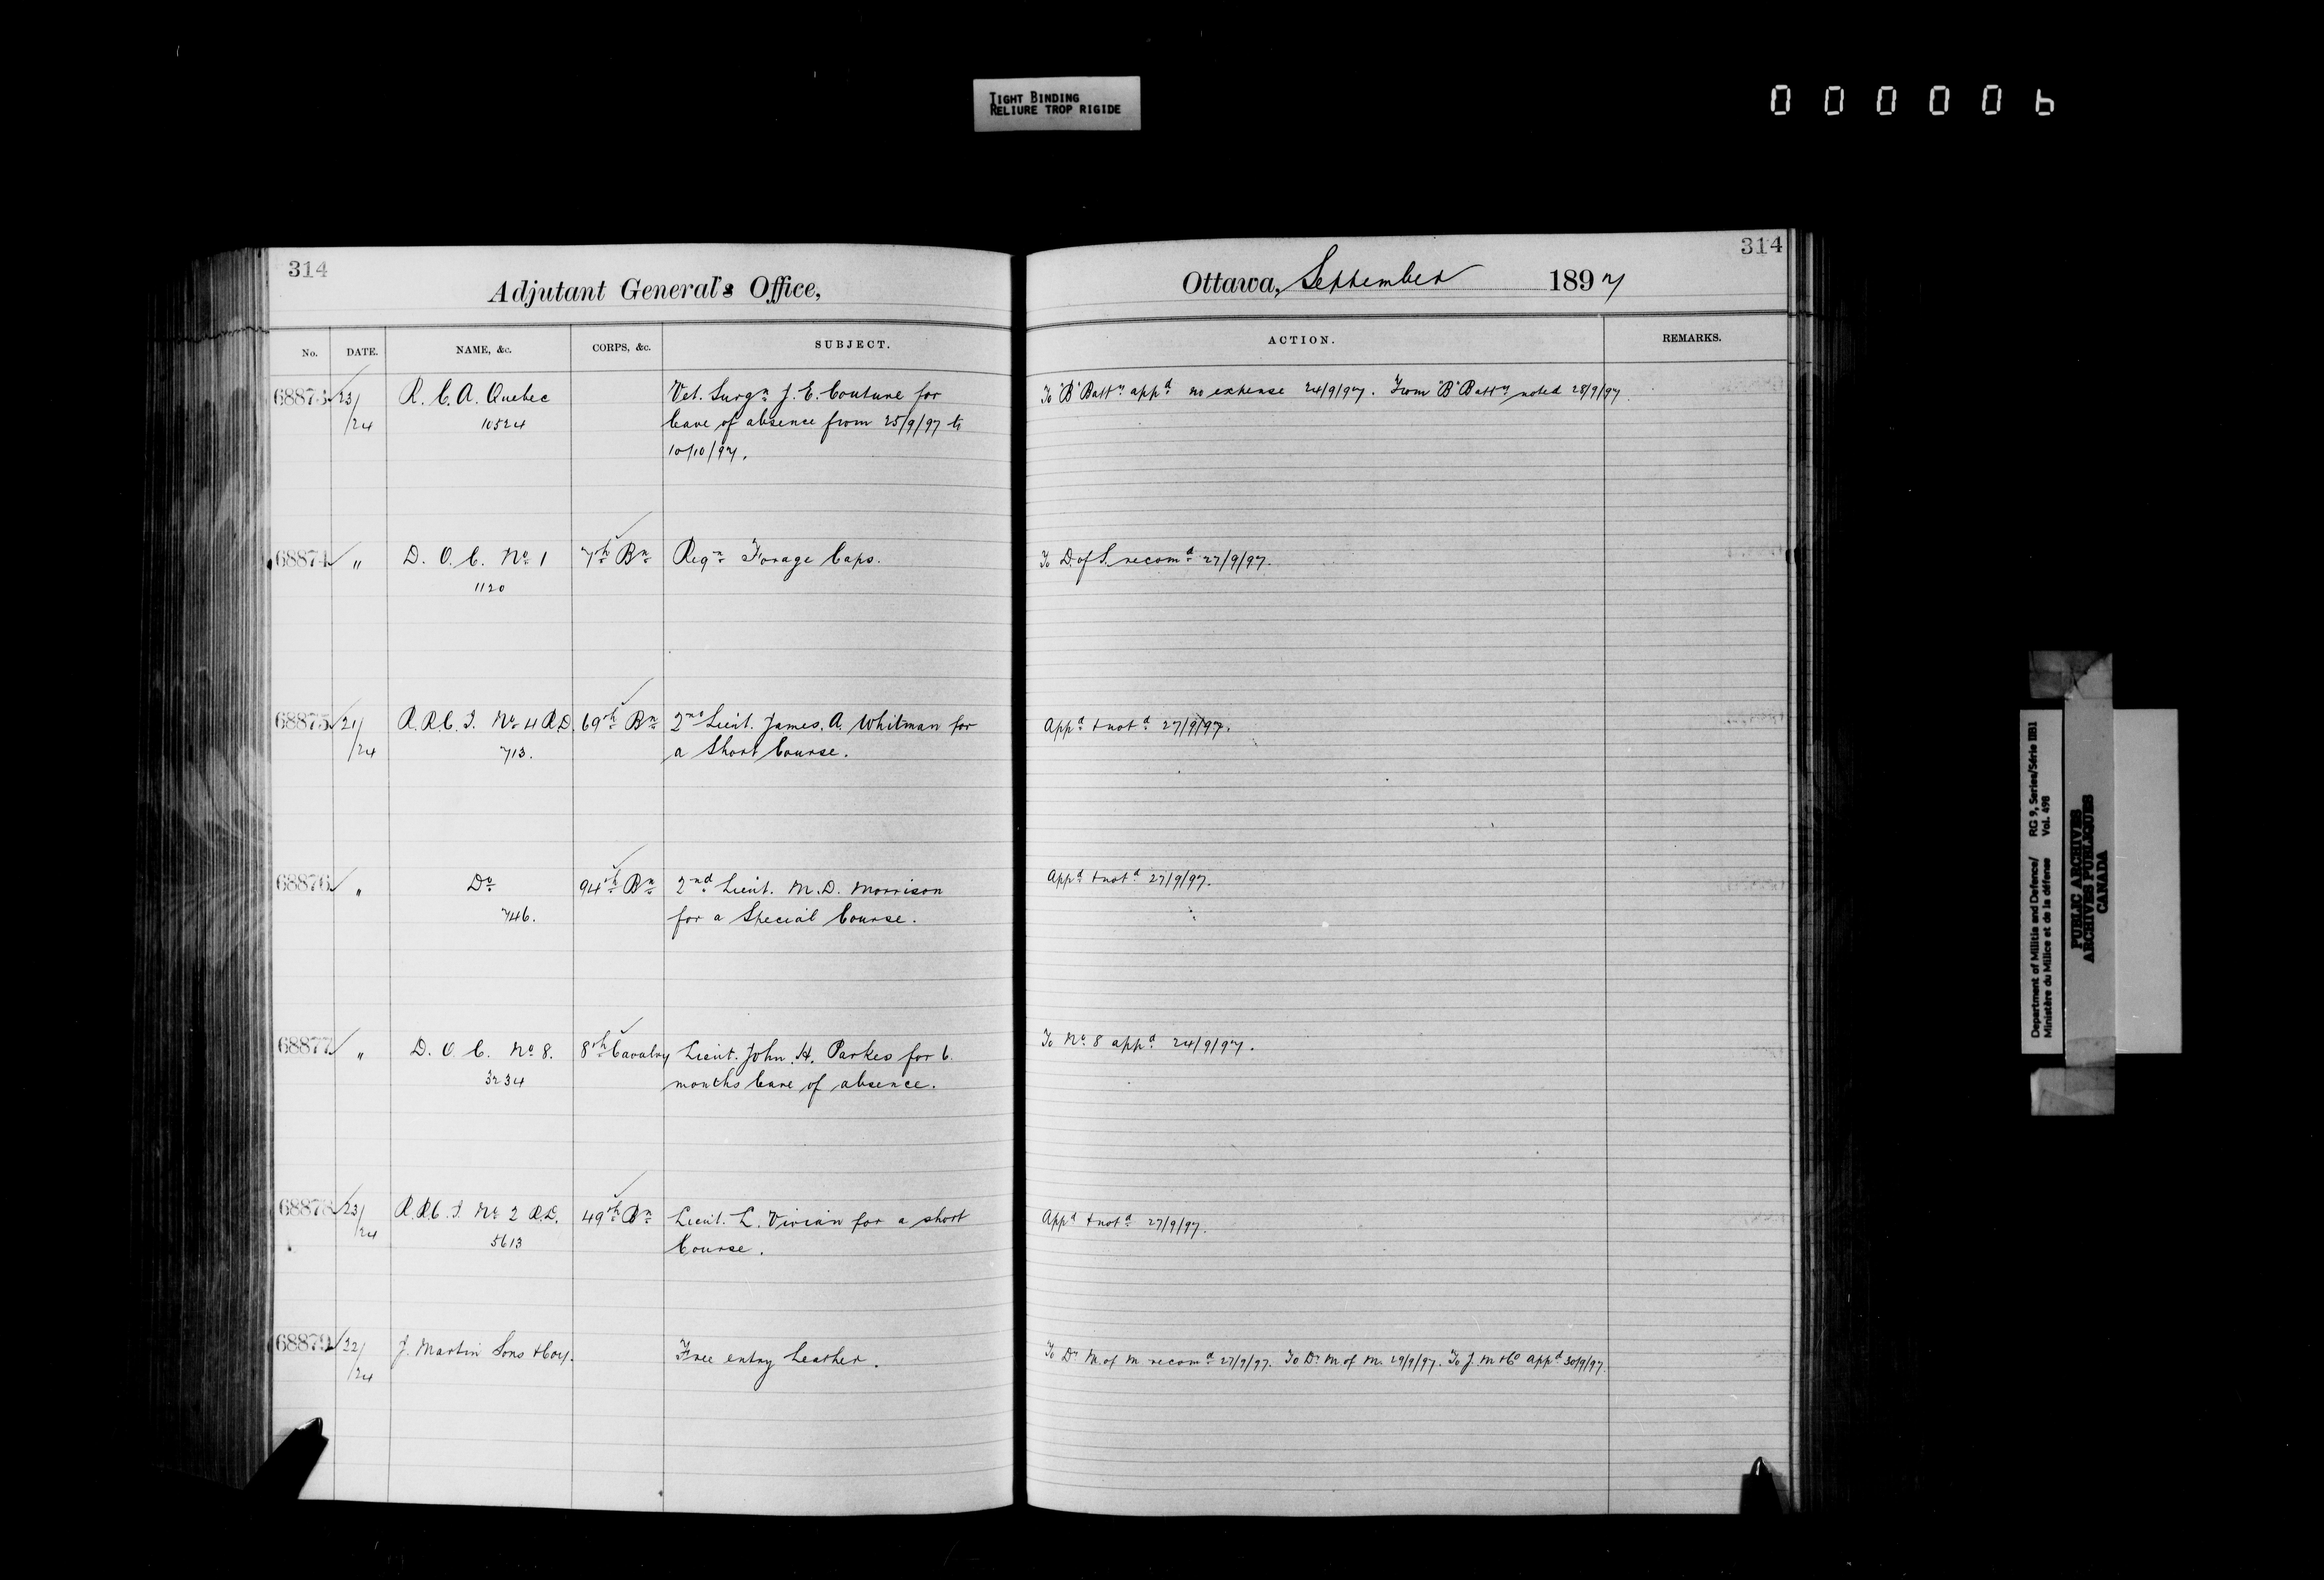 TIGHT BINDING
RELIURE TROP RIGIDE
000006
314
Adjutant General's Office,
No.
DATE.
NAME, &c.
CORPS, &c.
SUBJECT.
68873 23/24
R. C. A. Quebec
10524
Vet. Surgn J. E. Couture for
leave of absence from 25/9/97 to
10/10/97.
68874 "
D. O. C. No 1
1120
7th Bn
Reqn Forage Caps.
68875 21/24
R.R.C.I. No 4 R.D.
713.
69th Bn
2nd Lieut. James. A. Whitman for
a Short Course.
68876 "
Do
746.
94th Bn
2nd Lieut. M. D. Morrison
for a Special Course.
68877 "
D. O. C. No 8.
3234
8th Cavalry
Lieut. John. H. Parkes for 6
months leave of absence.
68878 23/24
R.R.C.I. No 2 R.D.
5613
49th Bn
Lieut. L. Vivian for a short
Course.
68879 22/24
J. Martin Sons & Coy.
Free entry Leather.
314
Ottawa, September 1897
ACTION.
REMARKS.
To "B" Batty appd no expense 24/9/97. From "B" Batty noted 28/9/97.
To D. of S. recomd 27/9/97.
Appd & notd 27/9/97.
Appd & notd 27/9/97.
To No 8 appd 24/9/97.
Appd & notd 27/9/97.
To Dr M of M recomd 27/9/97. To Dr M of M. 29/9/97. To J. M & Co appd 30/9/97.
Department of Militia and Defence/ RG 9, Series/Série IIB1
Ministère du Milice et de la défense Vol. 498
PUBLIC ARCHIVES
ARCHIVES PUBLIQUES
CANADA